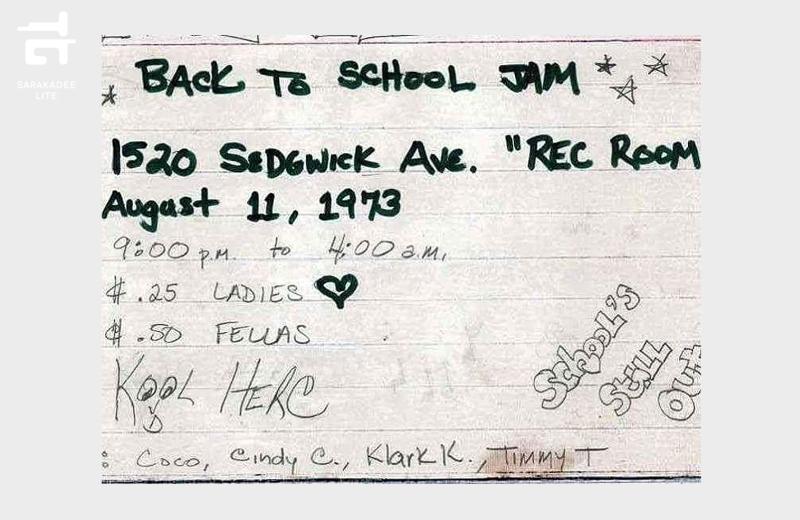 SARAKADEE
LITE
BACK TO SCHOOL JAM
1520 SEDGWICK AVE. "REC ROOM
August 11, 1973
9:00 p.m. to 4:00 a.m.
$.25 LADIES
$.50 FELLAS
KOOL HERC
SCHOOL'S
STILL
OUT
: Coco, Cindy C., Klark K., Timmy T